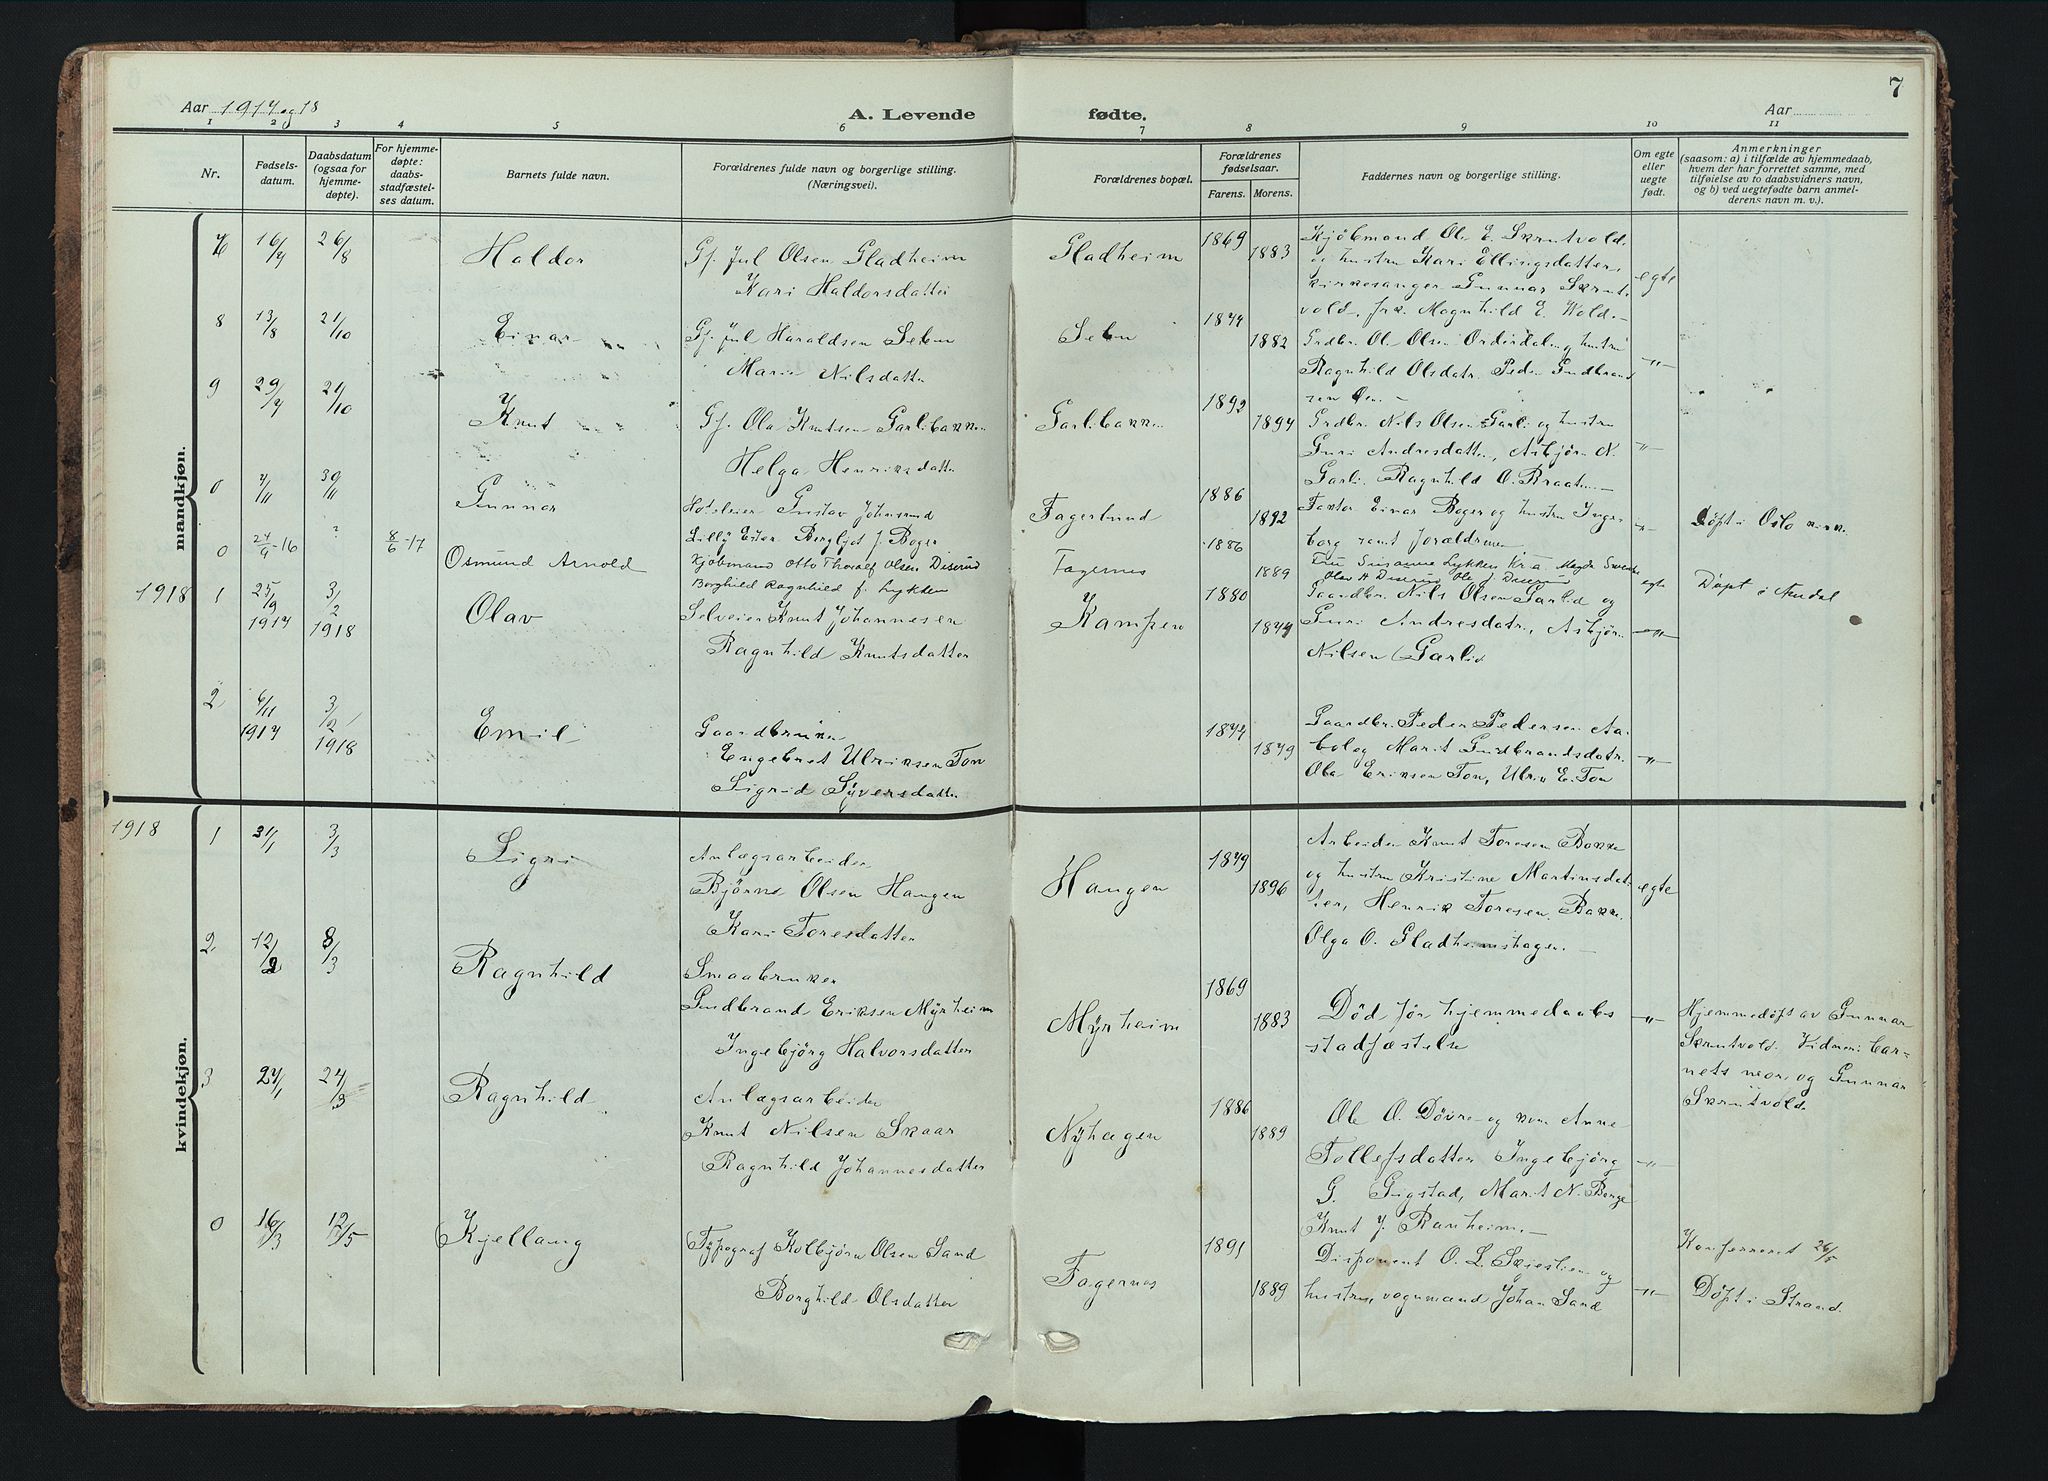 7
Aar 1917 og 18
A. Levende
fødte.
Aar
1 2 3 4 5 6 7 8 9 10 11
Nr.
Fødsels-
datum.
Daabsdatum
(ogsaa for
hjemme-
døpte).
For hjemme-
døpte:
daabs-
stadfæstel-
ses datum.
Barnets fulde navn.
Forældrenes fulde navn og borgerlige stilling.
(Næringsvei).
Forældrenes bopæl.
Forældrenes
fødselsaar.
Farens. Morens.
Faddernes navn og borgerlige stilling.
Om egte
eller
uegte
født.
Anmerkninger
(saasom: a) i tilfælde av hjemmedaab,
hvem der har forrettet samme, med
tilføielse av to daabsvidners navn,
og b) ved uegtefødte barn anmel-
derens navn m. v.).
mandkjøn.
7 16/7 26/8 Haldor
Gf. Jul Olsen Gladheim
Kari Haldorsdatter
Gladheim 1869 1883
Kjøbmand Ole E. Skrutvold
og hustru Kari Ellingsdatter,
kirkesanger Gunnar Skrut-
vold, frk. Magnhild E. Wold.
egte
8 13/8 21/10 Einar
Gf. Jul Haraldsen Sebu
Marie Nilsdatter
Sebu 1874 1882
Grdbr. Ole Olsen Ørderdalen og hustru
Ragnhild Olsdatr. Peder Gudbrand
sen
"
9 29/7 21/10 Knut
Gf. Ola Knutsen Garlibakken
Helga Henriksdatter
Garlibakken 1892 1894
Grdbr. Nils Olsen Garli og hustru
Guri Andresdatter, Asbjørn N.
Garli, Ragnhild O. Braaten.
"
0 7/11 30/11 Gunnar
Hoteleier Gustav Johnsrud
Lilly Ester Bergljot f. Boger
Fagerlund 1886 1892
Faktor Einar Boger og hustru Inge-
borg samt forældrene
"
Døpt i Oslo kirke
0 24/9-16 ? 8/6-17 Osmund Arnold
Kjøbmand Otto Thoralf Olsen Diserud
Borghild Ragnhild f. Lykken
Fagernes 1886 1889
Fru Susanna Lykken Kr.a. Magda
Olav A Diserud Ole J. Diserud
egte
Døpt i Aurdal
1918 1 25/9 1917 3/2 1918 Olav
Selveier Knut Johannesen
Ragnhild Knutsdatter
Kampen 1880 1879
Gaardbr. Nils Olsen Garlid og
Guri Andresdatr., Asbjørn
Nilsen Garlid
"
2 6/11 1917 3/2 1918 Emil
Gaardbruker
Engebret Ulriksen Ton
Sigrid Syversdatter
1874 1879
Gaardbr. Peder Pedersen Aa-
bol og Marit Gudbrandsdatr.
Ole Eriksen Ton, Ulrik E. Ton
"
kvindekjøn.
1918 1 31/1 3/3 Sigri
Anlægsarbeider
Bjørne Olsen Haugen
Kari Toresdatter
Haugen 1879 1896
Arbeider Knut Toresen Bakke
og hustru Kristine Martinsdat-
ter, Henrik Toresen Bakke
Olga O. Gladheimshagen.
egte
2 12/2 8/3 Ragnhild
Smaabruker
Gudbrand Eriksen Myrheim
Ingebjörg Halvorsdatter
Myrheim 1869 1883
Død før hjemmedaabs
stadfæstelse
"
Hjemmedøpt av Gunnar
Skrutvold. Vidner: bar-
nets mor, og Gunnar
Skrutvold.
3 27/1 24/3 Ragnhild
Anlægsarbeider
Knut Nilsen Skaar
Ragnhild Johannesdatter
Nyhagen 1886 1889
Ole O. Døvre og kone Anne
Tollefsdatter Ingebjörg
G. Gigstad, Marit N. Berge
Knut J. Ranheim.
"
0 16/3 12/5 Kjellaug
Typograf Kolbjørn Olsen Sand
Borghild Olsdatter
Fagernes 1891 1889
Disponent O. L. Skjestlien og
hustru, vognmand Johan Sand
"
Konfereret 26/5
Døpt i Strand.